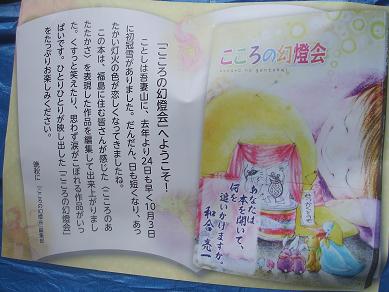 「こころの幻燈会」へようこそ!
ことしは吾妻山に、去年より24日も早く10月3日
に初冠雪がありました。だんだん、日も短くなり、あっ
たかい灯火の色が恋しくなってきましたね。
この本は、福島に住む皆さんが感じた〈こころのあ
たたかさ〉を表現した作品を編集して出来上がりまし
た。くすっと笑えたり、思わず涙がこぼれる作品がいっ
ぱいです。ひとりひとりが映し出した「こころの幻燈会」
をたっぷりお楽しみください。
晩秋に 「こころの幻燈会」編集部
こころの幻燈会
kokoro no gentokai
あなたは
本を開いて、
何を
追いかけますか。
和合亮一